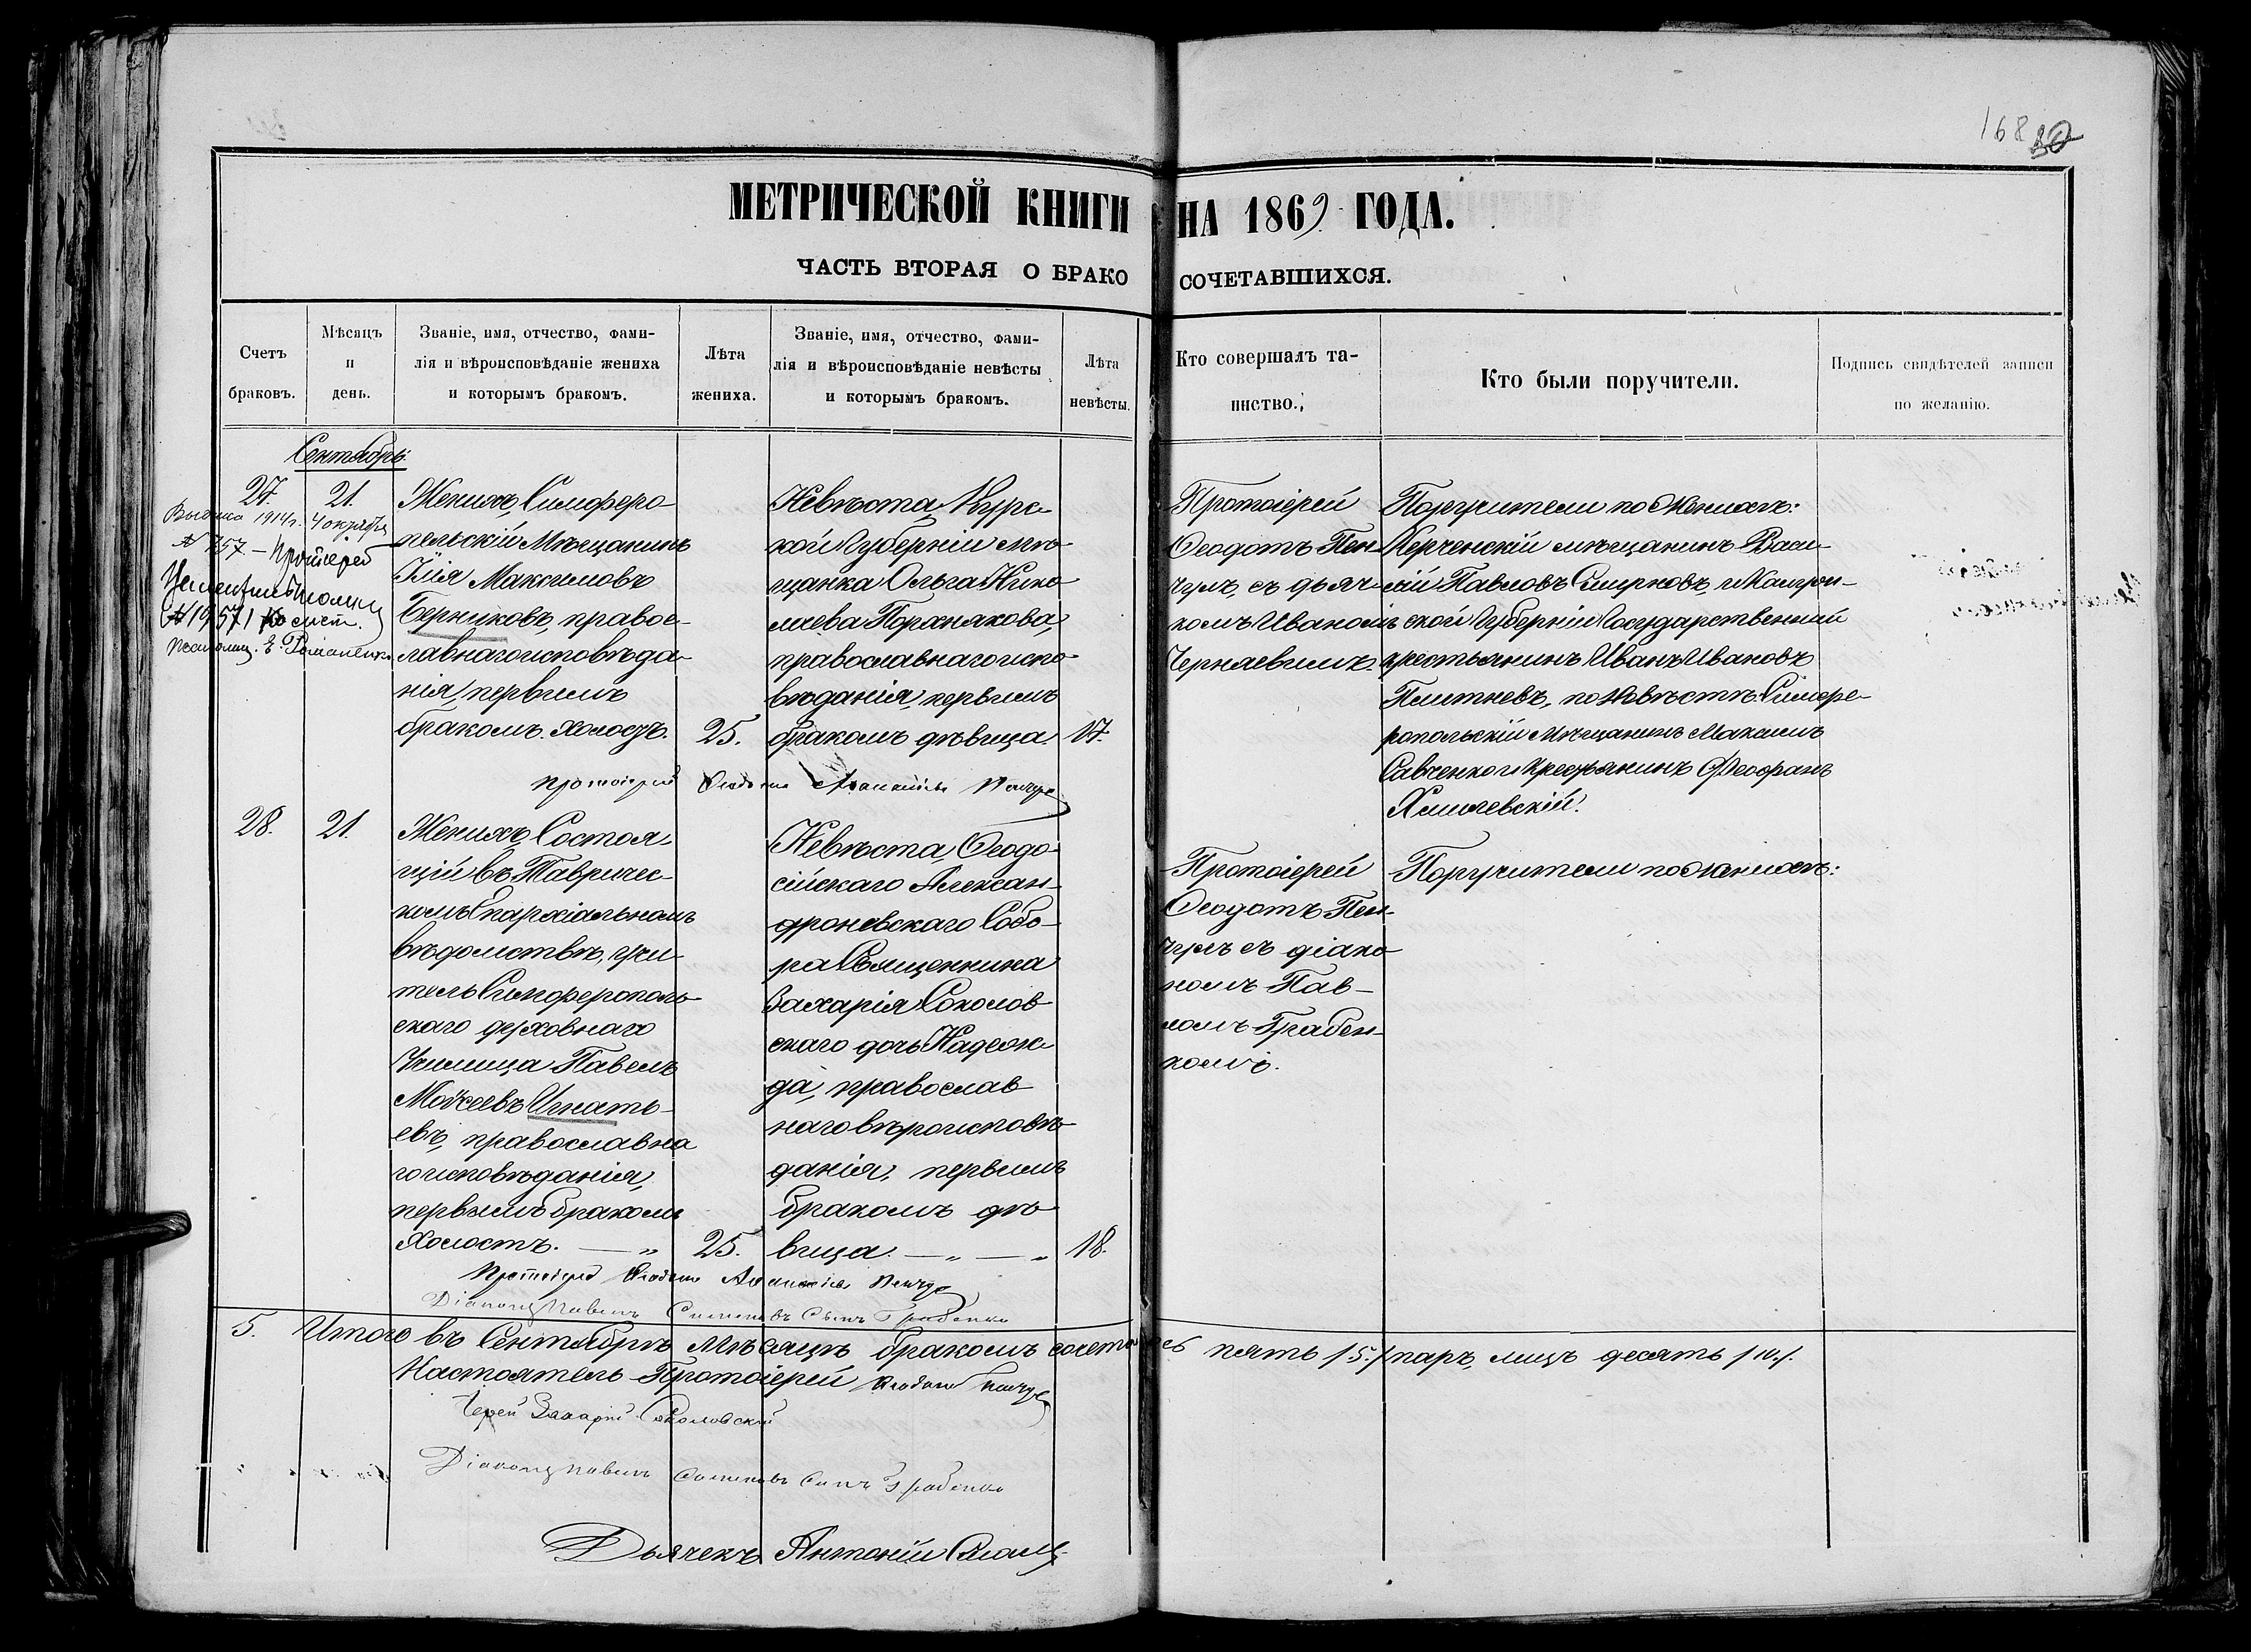 168 80
МЕТРИЧЕСКОЙ КНИГИ НА 1869 ГОДА.
ЧАСТЬ ВТОРАЯ О БРАКОСОЧЕТАВШИХСЯ.
Счетъ
браковъ.
Мѣсяцъ
и
день.
Званіе, имя, отчество, фами-
лія и вѣроисповѣданіе жениха
и которымъ бракомъ.
Лѣта
жениха.
Званіе, имя, отчество, фами-
лія и вѣроисповѣданіе невѣсты
и которымъ бракомъ.
Лѣта
невѣсты.
Кто совершалъ та-
инство.
Кто были поручители.
Подпись свидѣтелей записи
по желанію.
Сентябрь
27.
21.
1914 г. 4 октября
№ 757 – Протоіерей
Псаломщ. Е. Романенко
Женихъ, Симферо-
польскій Мѣщанинъ
Илія Максимовъ
Берниковъ, правос-
лавнаго исповѣда-
нія, первымъ
бракомъ. холостъ.
25.
Невѣста, Курс-
кой Губерніи мѣ-
щанка Ольга Нико-
лаева Поранякова,
православнаго испо-
вѣданія, первымъ
бракомъ дѣвица.
17.
Протоіерей
Ѳеодотъ Пен-
чулъ, съ дьяч-
комъ Иваномъ
Черняевымъ.
Поручители по Женихѣ:
Керченскій мѣщанинъ Васи-
лій Павловъ Смирновъ, и
ской Губерніи Государственный
крестьянинъ Иванъ Ивановъ
Плитневъ, по Невѣстѣ: Симфе-
ропольскій Мѣщанинъ Максимъ
Савченко и Крестьянинъ Феофанъ
Хмилевскій.
протоіерей Ѳеодотъ Пенчулъ
28.
21.
Женихъ, Состоя-
щій въ Тавричес-
комъ Епархіальномъ
вѣдомствѣ, учи-
тель Симферополь-
скаго духовнаго
Училища Павелъ
Моѵсеевъ Игнать-
евъ, православна
го исповѣданія,
первымъ бракомъ
Холостъ. — „
25.
Невѣста, Ѳеодо-
сійскаго Алексан-
дроневскаго Собо-
ра Священника
Захарія Соколов
скаго дочь Надеж-
да, православ
наго вѣроисповѣ-
данія, первымъ
бракомъ дѣ-
вица. — „ — „
18.
Протоіерей
Ѳеодотъ Пен-
чулъ съ діако
номъ Пав-
ломъ Грабен-
комъ.
Поручители по женихѣ:
Протоіерей Ѳеодотъ Пенчулъ
Діаконъ Павелъ Симеоновъ Сынъ Грабенко
5. Итого въ Сентябрѣ Мѣсяцѣ бракомъ сочеталось пять /5./ паръ, лицъ десять /10./.
Настоятель Протоіерей Ѳеодотъ Пенчулъ
Іерей Захарій Соколовскій
Діаконъ Павелъ Симеоновъ Сынъ Грабенко
Дьячекъ Антоній